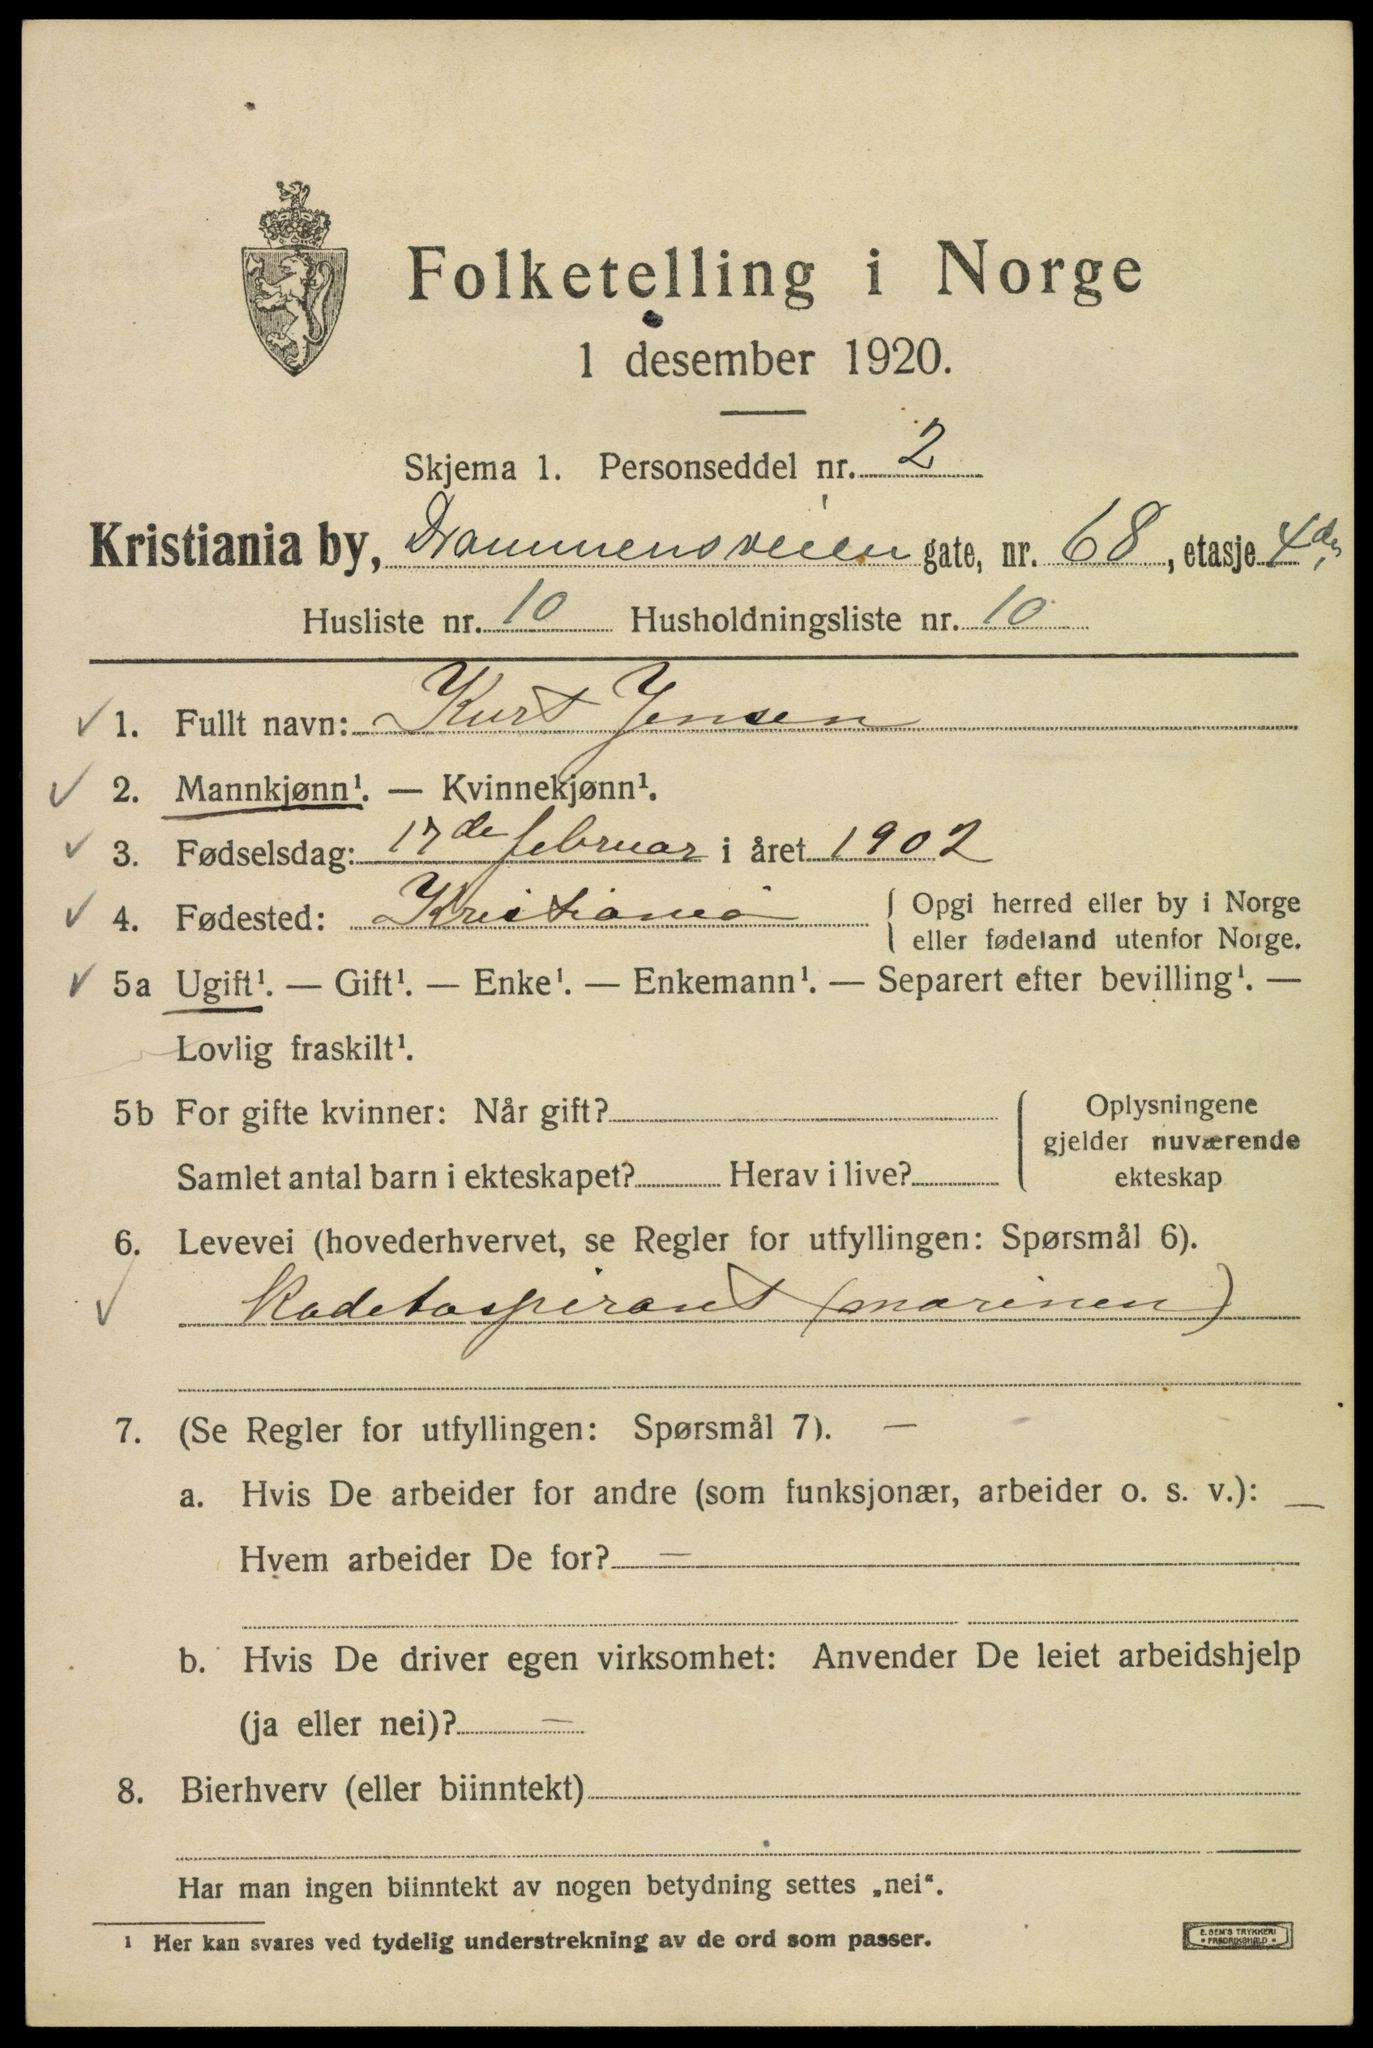 Folketelling i Norge
1 desember 1920.
Skjema 1. Personseddel nr. 2
Kristiania by, Drammensveien gate, nr. 68, etasje 4de,
Husliste nr. 10 Husholdningsliste nr. 10
1. Fullt navn: Kurt Jensen
2. Mannkjønn¹. — Kvinnekjønn¹.
3. Fødselsdag: 17de februar i året 1902
4. Fødested: Kristiania { Opgi herred eller by i Norge
eller fødeland utenfor Norge.
5a Ugift¹. — Gift¹. — Enke¹. — Enkemann¹. — Separert efter bevilling¹. —
Lovlig fraskilt¹.
5b For gifte kvinner: Når gift? { Oplysningene
gjelder nuværende
Samlet antal barn i ekteskapet? Herav i live? ekteskap
6. Levevei (hovederhvervet, se Regler for utfyllingen: Spørsmål 6).
Kadetaspirant (marinen)
7. (Se Regler for utfyllingen: Spørsmål 7). —
a. Hvis De arbeider for andre (som funksjonær, arbeider o. s. v.): —
Hvem arbeider De for? —
b. Hvis De driver egen virksomhet: Anvender De leiet arbeidshjelp
(ja eller nei)? —
8. Bierhverv (eller biinntekt)
Har man ingen biinntekt av nogen betydning settes „nei“.
¹ Her kan svares ved tydelig understrekning av de ord som passer.
E. SEM'S TRYKKERI
* FREDRIKSHALD *